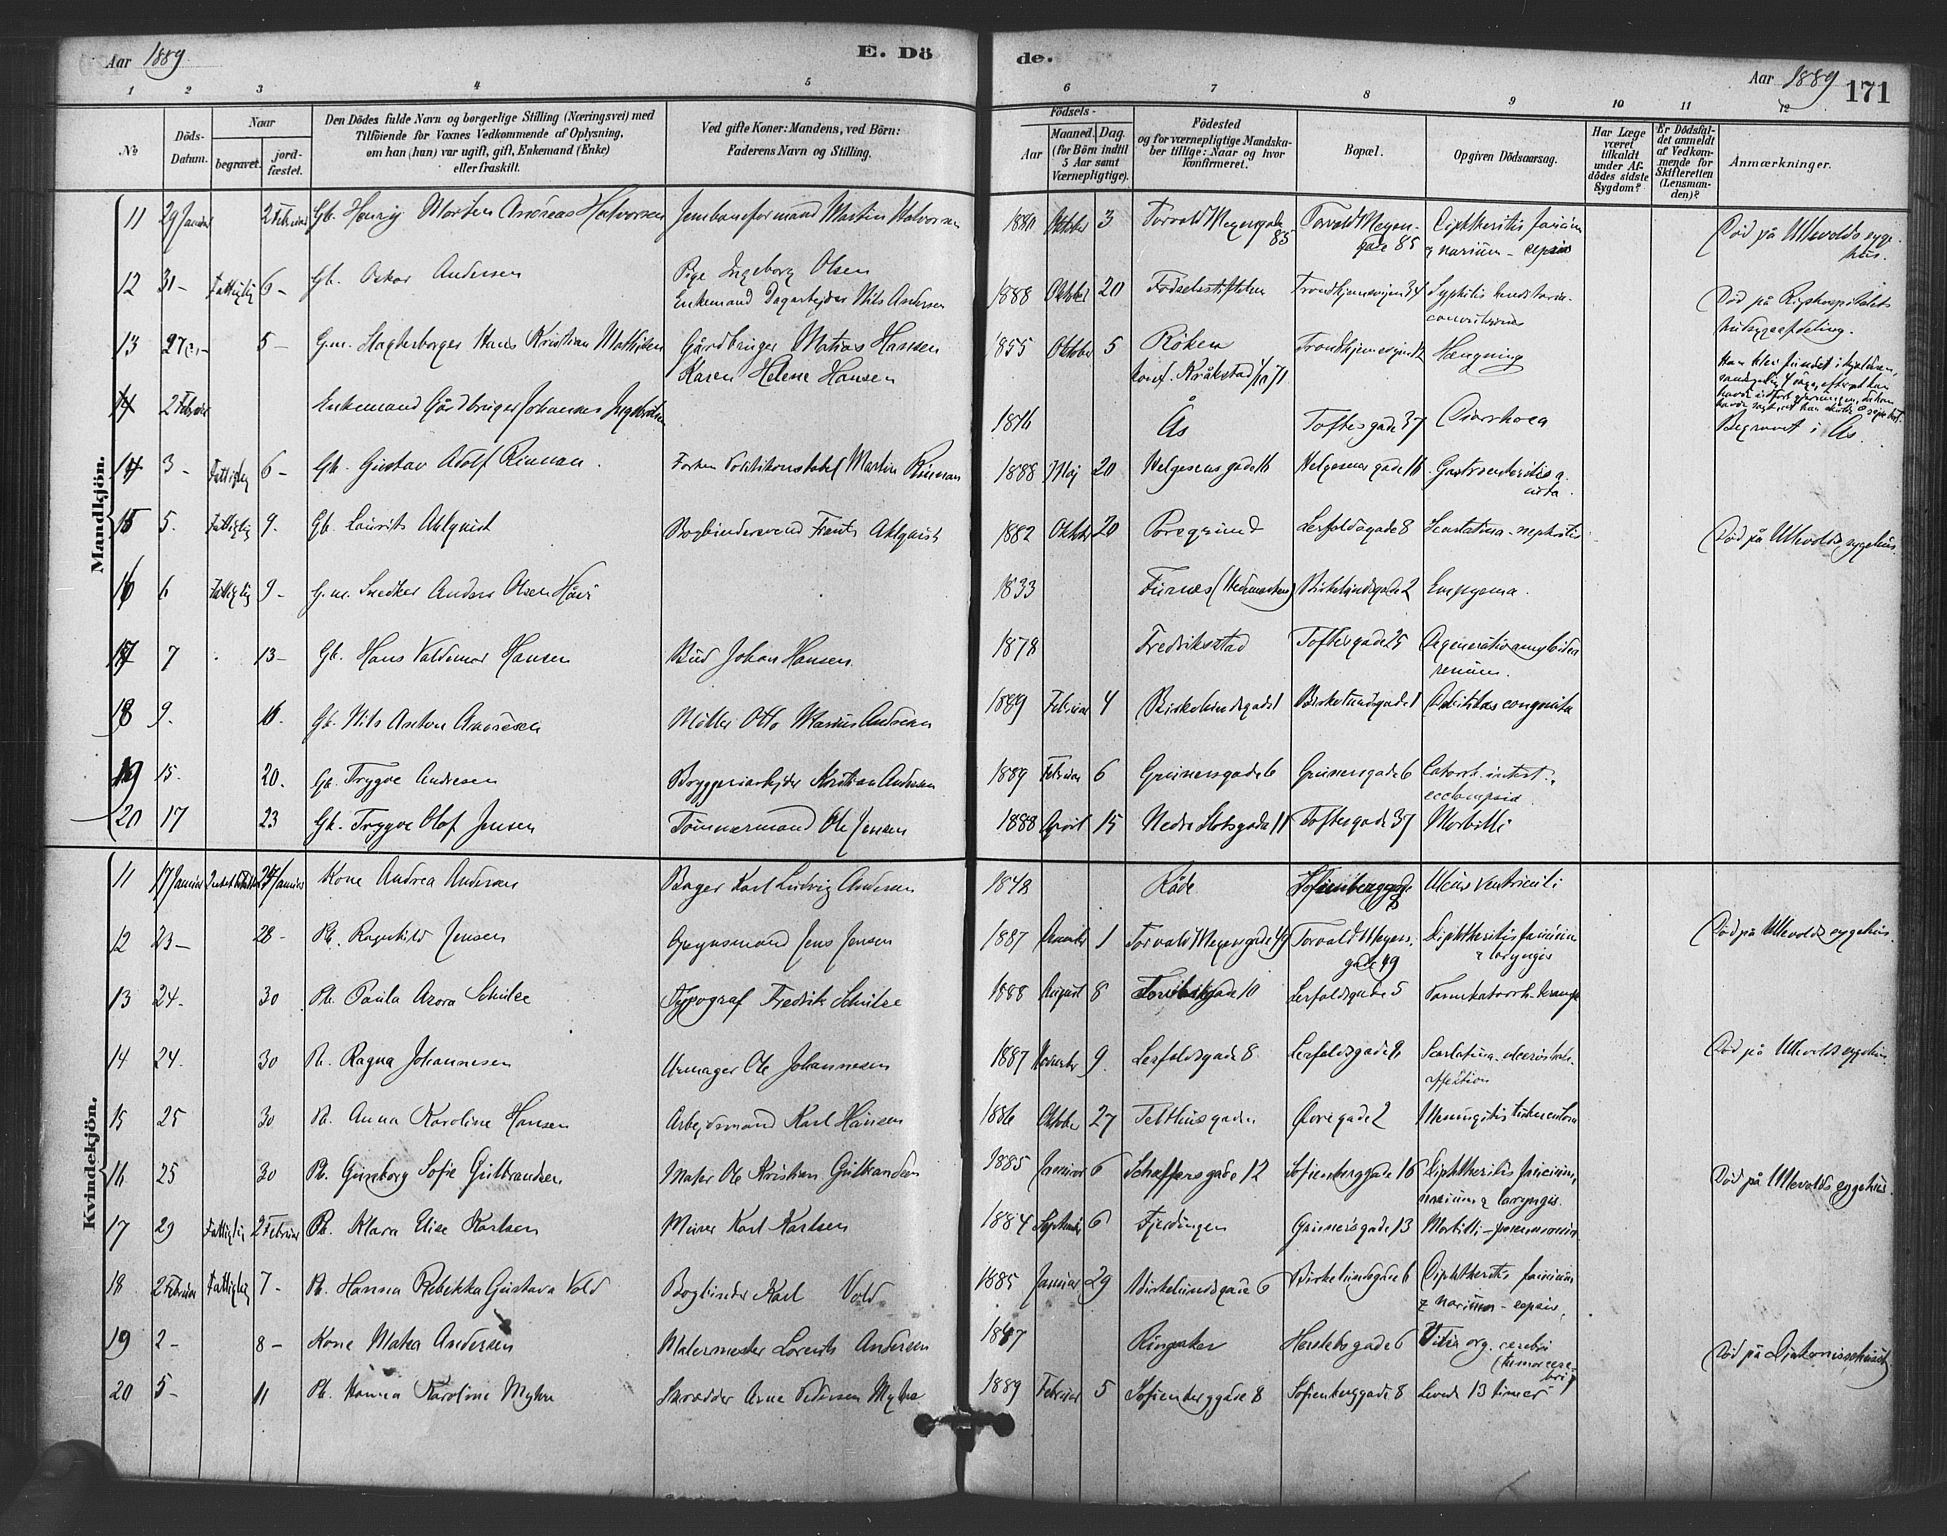 Aar 1889
E. Dö
de.
Aar 1889
171
1 2 3 4 5 6 7 8 9 10 11 12
No
Döds-Datum.
Naar
begravet.
jord-fæstet.
Den Dödes fulde Navn og borgerlige Stilling (Næringsvei) med
Tilföiende for Voxnes Vedkommende af Oplysning,
om han (hun) var ugift, gift, Enkemand (Enke)
eller fraskilt.
Ved gifte Koner: Mandens, ved Börn:
Faderens Navn og Stilling.
Födsels-
Aar
Maaned. Dag.
(for Börn indtil
5 Aar samt
Værnepligtige).
Födested
og for værnepligtige Mandska-
ber tillige: Naar og hvor
konfirmeret.
Bopæl.
Opgiven Dödsaarsag.
Har Læge
været
tilkaldt
under Af-
dödes sidste
Sygdom?
Er Dödsfal-
det anmeldt
af Vedkom-
mende for
Skifteretten
(Lensman-
den)?
Anmærkninger.
Mandkjön.
11 29 Januar 2 Februar Gb. Morten Andreas Halvorsen Jernbaneformand Martin Halvorsen 1880 Oktober 3 Torvald Meyersgade 85 Torvald Meyers-gade 85 Diphtheritis faucium & narium - sepsis Død på Ullevolds sygehus.
12 31 - Fattiglig 6 - Gb. Oskar Andersen Pige Ingeborg Olsen
Enkemand Dagarbejder Nils Andersen 1888 Oktober 20 Fødselsstiftelsen Trondhjemsvejen 34 Syphilis hereditaria - convulsiones Død på Rigshospitalets hudsygeafdeling.
13 27 5 - Gm. Hans Kristian Mathisen Gårdbruger Matias Hansen
Karen Helene Hansen 1855 Oktober 5 Røken
konf. Kråkstad Hængning
14 2 Februar Enkemand Gårdbruger Johannes 1816 Ås Toftesgade 37 Diarrhoea Begravet i Ås.
14 3 - Fattiglig 6 - Gb. Gustav Adolf Rinnan. Forhen Politikonstabel Martin Rinnan 1888 Maj 20 Helgesensgade 16 Helgesensgade 16 Gastroenteritis acuta.
15 5. Fattiglig 9. Gb. Laurits Ahlquist Bogbindersvend Frents Ahlquist 1882 Oktober 20 Porsgrund Lerfaldsgade 8 Scarlatina - nephritis Død på Ullevolds sygehus.
16 6 Fattiglig 9 - G.m. Snedker Anders Olsen 1833 Furnes (Hedemarken) Birkelundsgade 2 Empyema.
17 7 13 - Gb. Hans Valdemar Hansen Bud Johan Hansen. 1878 Fredriksstad Toftesgade 25 Degeneratio amyloidea renum.
18 9. 16. Gb. Nils Anton Andresen Møller Otto Marius Andresen 1889 Februar 4 Birkelundsgade 1 Birkelundsgade 1 Debilitas congenita
19 15. 20. Gb. Trygve Andresen Bryggeriarbejder Kristian Andresen 1889 Februar 6 Grünersgade 6 Grünersgade 6 Catarrh. intest. eclampsia.
20 17 23 Gb. Trygve Olof Jensen Tømmermand Ole Jensen 1888 April 15 Nedre Slotsgade 11 Toftesgade 37 Morbilli
Kvindekjön.
11 17 Januar 24 Januar Kone Andrea Andersen Bager Karl Ludvig Andersen 1848 Råde Ulcus ventriculi
12 23 - 28 - Pb. Ragnhild Jensen Jens Jensen 1887 1 Torvald Meyersgade 49 Torvald Meyers-gade 49 Diphtheritis faucium & laryngis Død på Ullevolds sygehus.
13 24. 30 Pb. Paula Azora Schulze Typograf Fredrik Schulze 1888 August 8 Lerfaldsgade 5 Tarmkatarrh - krampe
14 24. 30 Pb. Ragna Johannesen Urmager Ole Johannesen 1887 November 9. Lerfaldsgade 8 Lerfaldsgade 8 Scarlatina - affektion Død på Ullevolds sygehus.
15 25 30 Pb. Anna Karoline Hansen Arbejdsmand Karl Hansen 1886 Oktober 27 Telthusgaden Øvregade 2 Meningitis tuberculosa
16 25 30 Pb. Gunborg Sofie Gulbrandsen Maler Ole Kristian Gulbrandsen 1885 Januar 6 Schaffersgade 12 Sofienberggade 16 Diphtheritis faucium, narium & laryngis. Død på Ullevolds sygehus.
17 29 Fattiglig 2 Februar Pb. Klara Elise Karlsen Murer Karl Karlsen 1884 September 6 Fjerdingen Grünersgade 13 Morbilli - pneumonia
18 2 Februar Fattiglig 7 - Pb. Hanna Rebekka Gustava Vold Bogbinder Karl Vold 1885 Januar 29 Birkelundsgade 6 Birkelundsgade 6 Diphtheritis faucium & narium - sepsis.
19 2 - 8 - Kone Matea Andersen Malermester Lorents Andersen 1847 Ringsaker Herslebsgade 6 Vitia org. cerebri (tumor cerebri) Død på Diakonissehuset
20 5 - 11 Pb. Hanna Karoline Myhre Skrædder Arne Pedersen Myhre 1889 Februar 5 Sofienberggade 8 Sofienberggade 8 Levede 13 timer